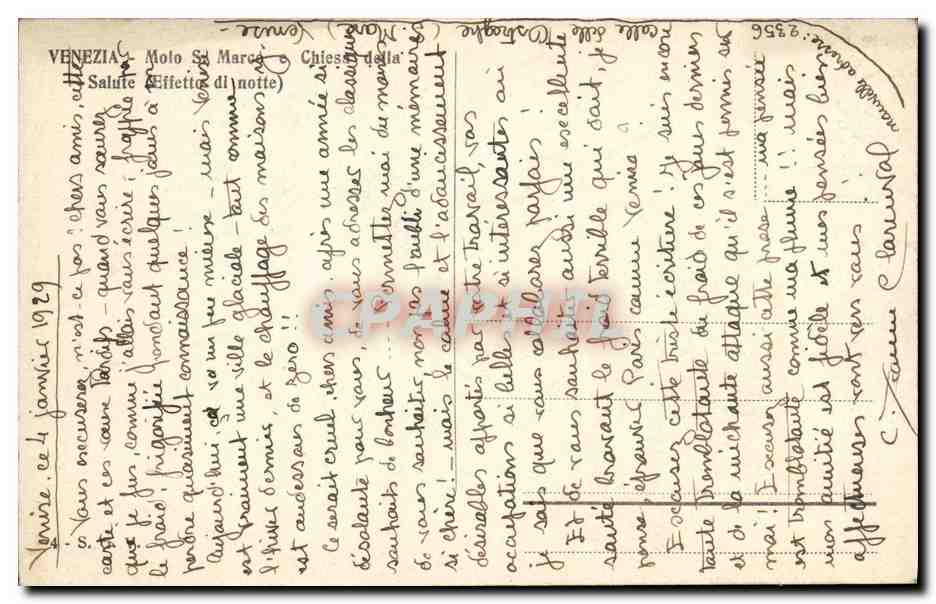 VENEZIA - Molo S. Marco e Chiesa della
Salute (Effetto di notte)
Venise, ce 4 janvier 1929
Vous excuserez, n'est-ce pas? chers amis, cette
carte et ces vœux tardifs - quand vous saurez
que je fus, comme j'allais vous écrire, frappée par
le froid, frigorifiée pendant quelques jours à en
perdre quasiment connaissance!
Aujourd'hui, ça va un peu mieux - mais Venise
est vraiment une ville glaciale - tout comme
l'hiver dernier, et le chauffage des maisons y
est audessous de zero!!
Ce serait cruel, chers amis, après une année si
désolante pour vous de vous adresser les classiques
souhaits de bonheur... Permettez-moi du moins
de vous souhaiter non pas l'oubli d'une mémoire
si chère! - mais le calme et l'adoucissement
désirables apportés par votre travail, vos
occupations si belles et si intéressantes où
je sais que vous collaborez parfois!
Et je vous souhaite aussi une excellente
santé bravant le froid terrible qui doit, je
pense, éprouver Paris comme Venise
Excusez cette triste écriture! je suis encore
toute tremblotante du froid de ces jours derniers
et de la méchante attaque qu'il s'est permis sur
moi! Excusez aussi cette prose - ma pensée
est tremblotante comme ma plume!! mais
mon amitié est fidèle et mes pensées bien
affectueuses vont vers vous
Jeanne Clairval
nouvelle adresse: 2356
calle delle
Ostreghe
Venise
CPAPHIL